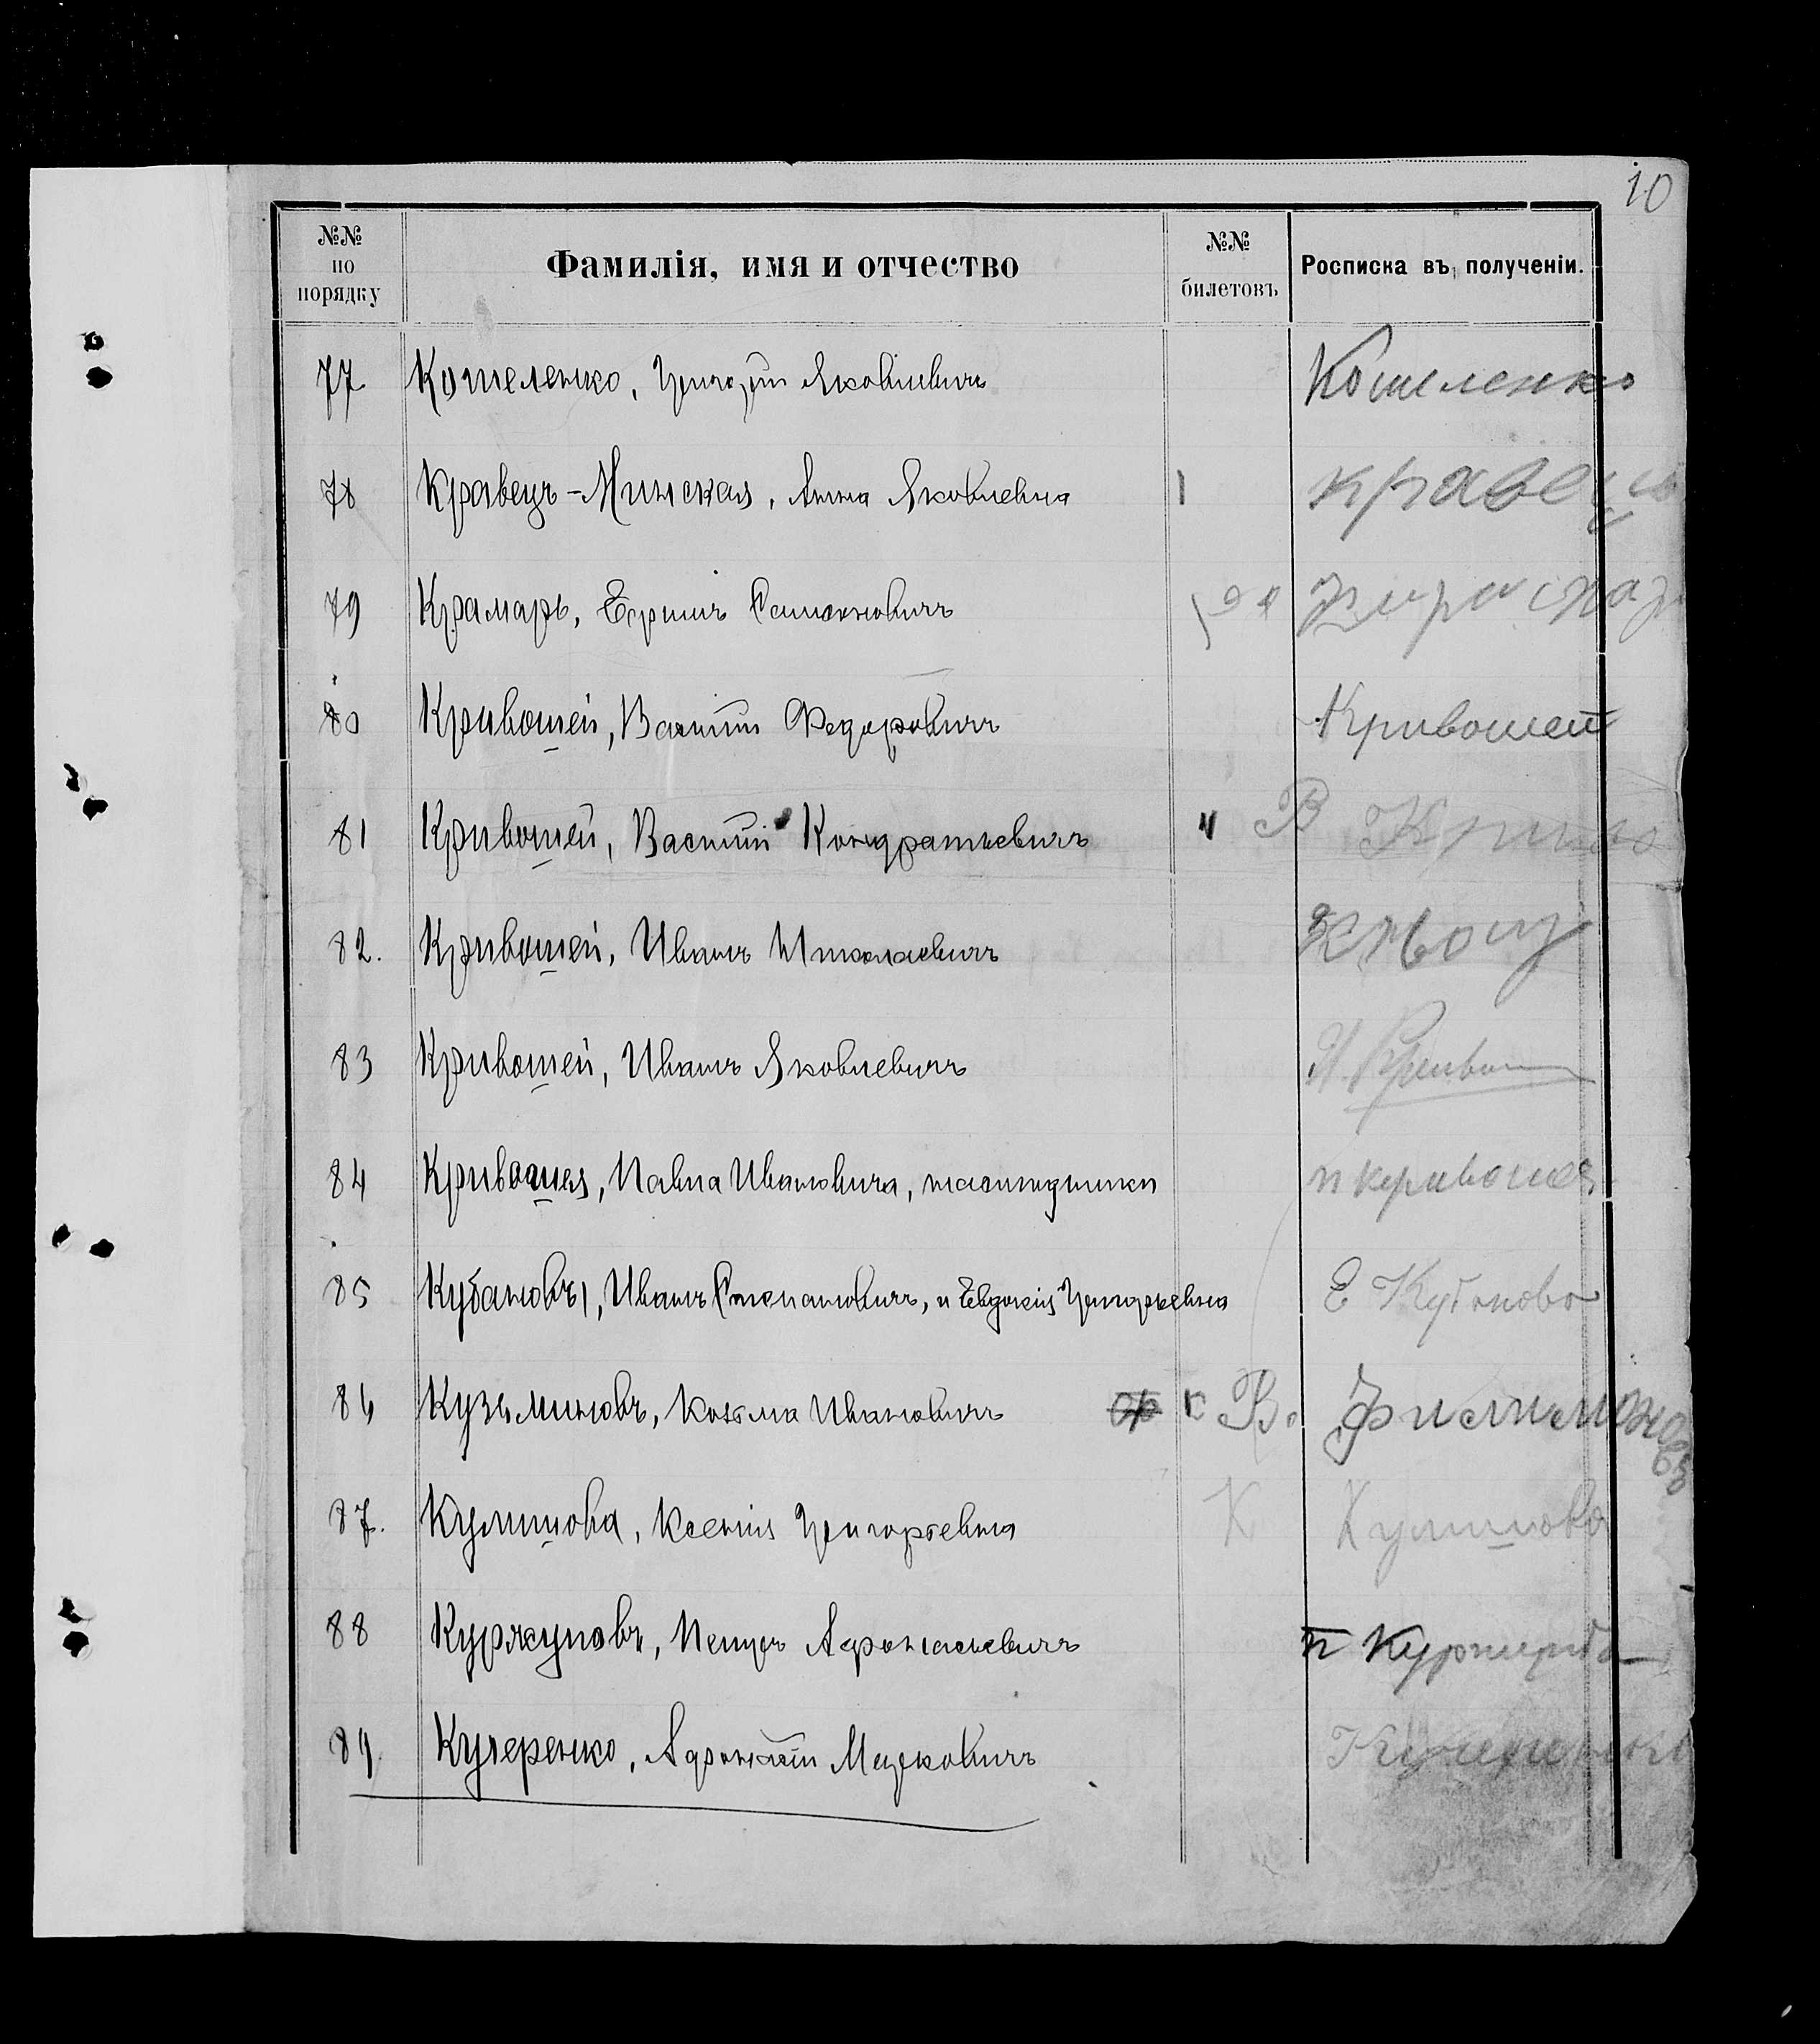 10
№№ по порядку Фамилія, имя и отчество №№ билетовъ Росписка въ полученіи.
77 Кошеленко, Григорій Яковлевичъ Кошеленко
78 Кравецъ-Минская, Анна Яковлевна 1 Кравець
79 Крамарь, Ефимъ Семеновичъ
80 Кривошей, Василій Федоровичъ Кривошей
81 Кривошей, Василій Кондратьевичъ " В Криво
82. Кривошей, Иванъ Николаевичъ
83 Кривошей, Иванъ Яковлевичъ И. Кривош
84 Кривошея, Павла Ивановича, наслѣдники п кривошея
85 Кубановы, Иванъ Степановичъ, и Евдокія Григорьевна Е Кубанова
86 Кузьминовъ, Козьма Ивановичъ к В. Филимоновъ
87. Кулишова, Ксенія Григорьевна К Кулишова
88 Курякуповъ, Петръ Афонасьевичъ п
89. Кучеренко, Афонасій Марковичъ